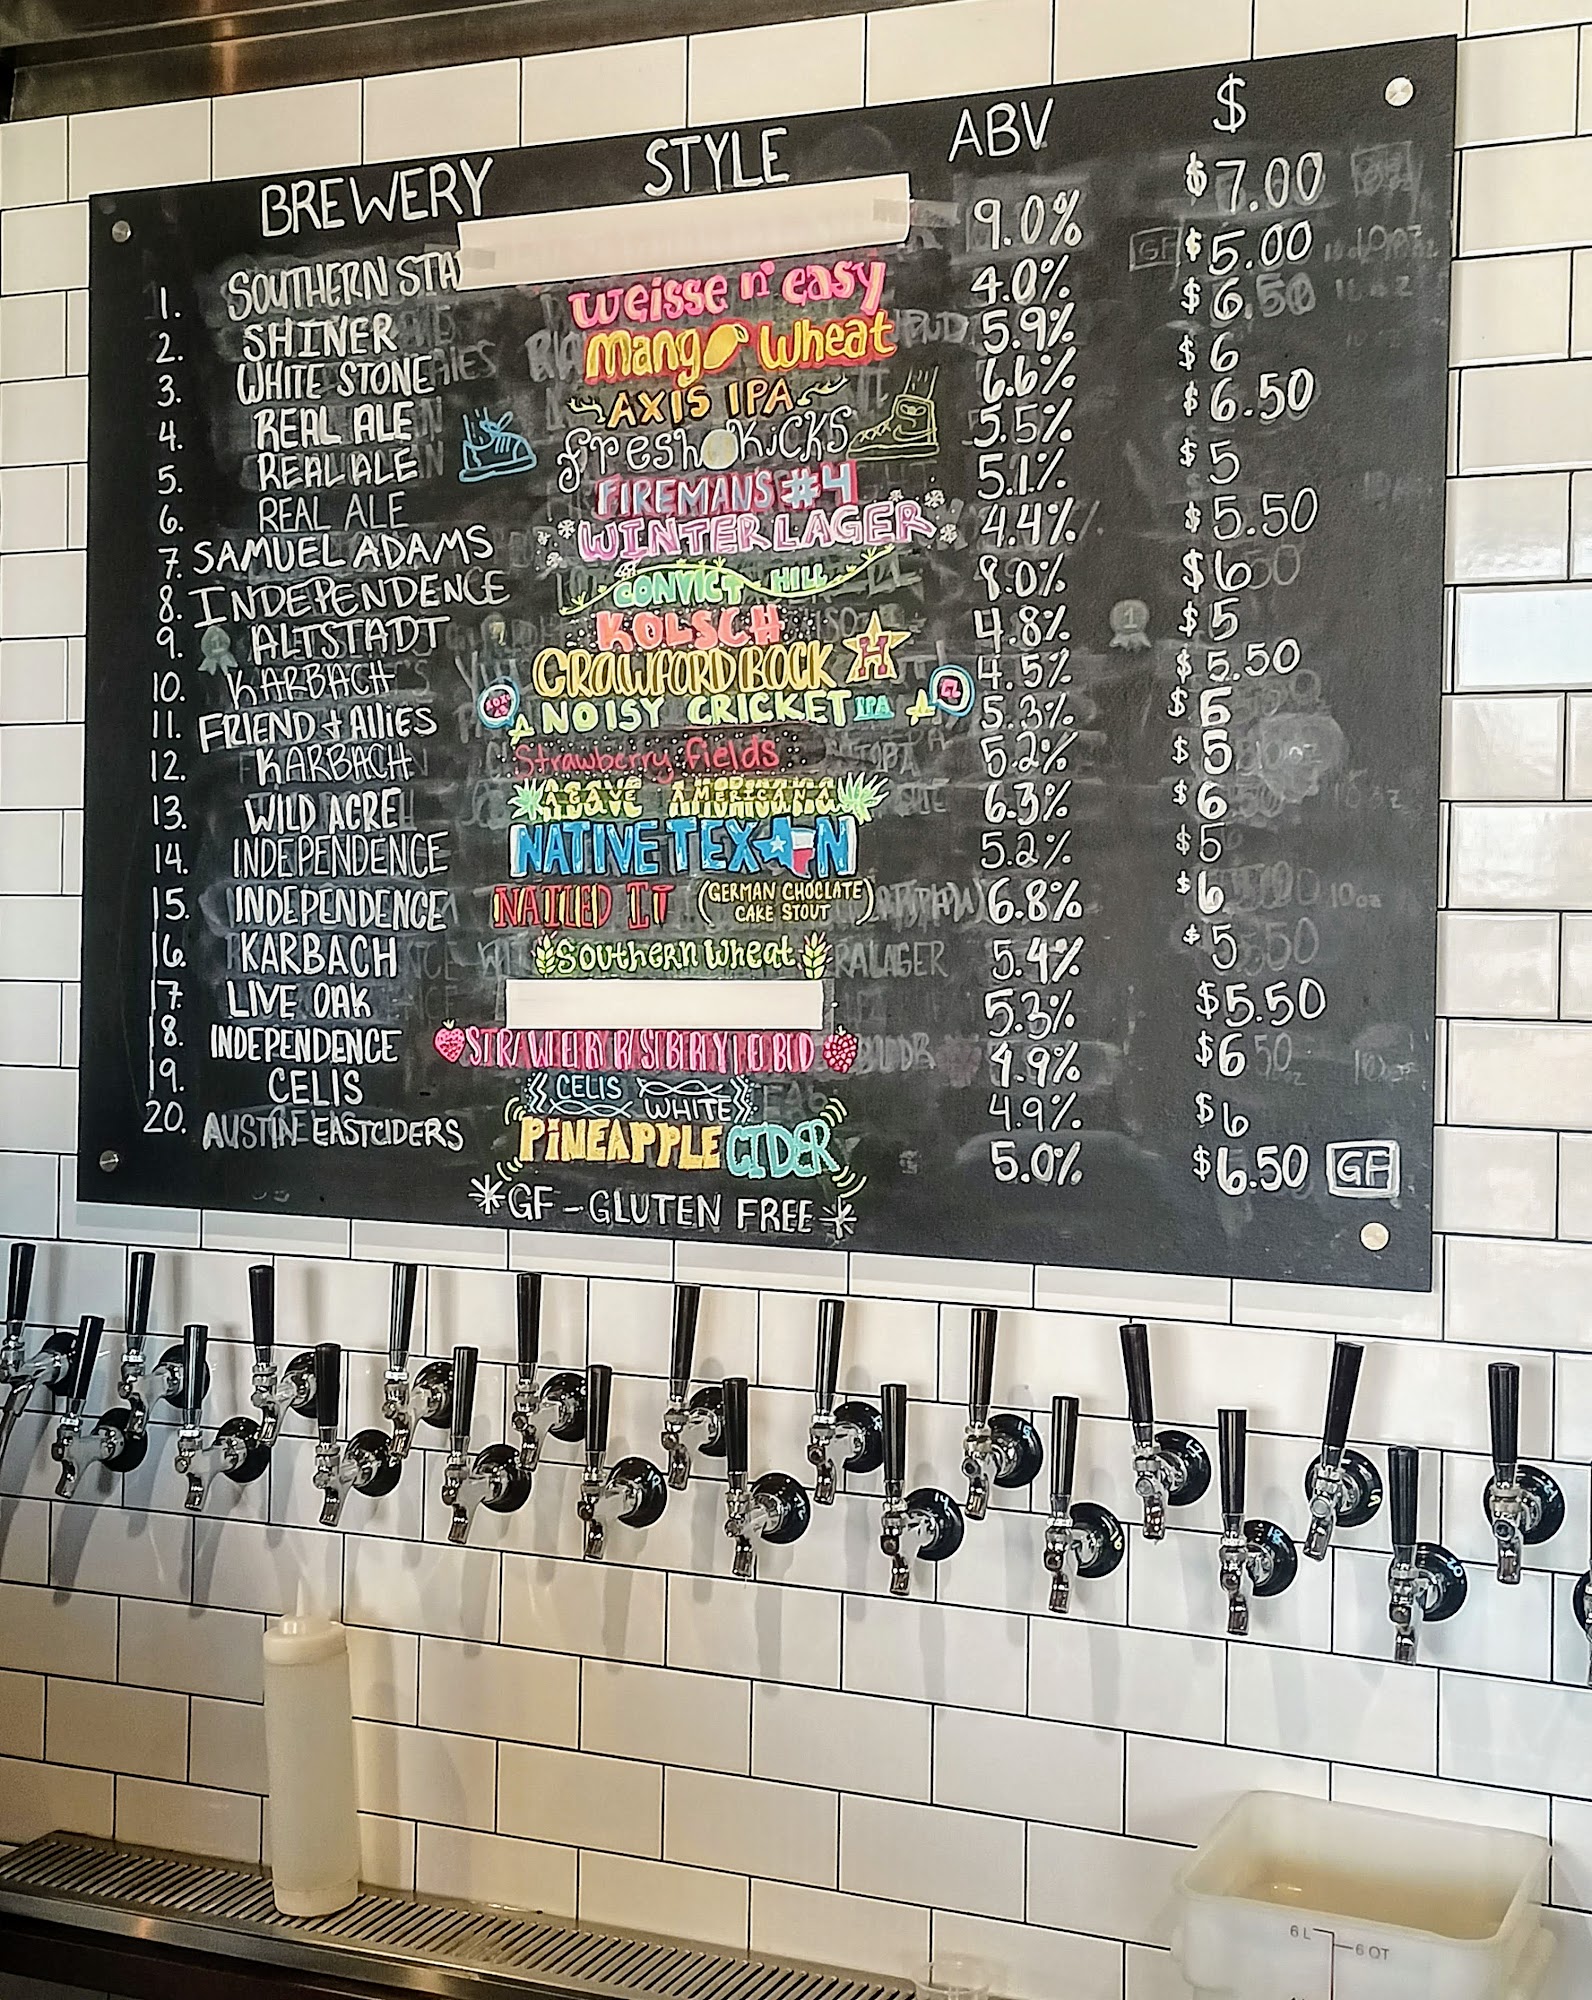 BREWERY STYLE ABV $
1. SOUTHERN 9.0% $7.00
2. SHINER weisse n' easy 4.0% $5.00
3. WHITE STONE Mango Wheat 5.9% $6.50
4. REAL ALE AXIS IPA 6.6% $6
5. REAL ALE fresh KiCKS 5.5% $6.50
6. REAL ALE FIREMAN'S #4 5.1% $5
7. SAMUEL ADAMS WINTER LAGER 4.4% $5.50
8. INDEPENDENCE CONVICT HILL 8.0% $6
9. ALTSTADT KOLSCH 4.8% $5
10. KARBACH CRAWFORD BOCK H 4.5% $5.50
11. FRIEND & Allies NOISY CRICKET IPA 5.3% $5
12. KARBACH Strawberry fields 5.2% $5
13. WILD ACRE AGAVE AMERICANA 6.3% $6
14. INDEPENDENCE NATIVE TEXAN 5.2% $5
15. INDEPENDENCE NAILED IT (GERMAN CHOCLATE CAKE STOUT) 6.8% $6
16. KARBACH Southern Wheat 5.4% $5
17. LIVE OAK 5.3% $5.50
18. INDEPENDENCE STRAWBERRY RASPBERRY REDBUD 4.9% $6
19. CELIS CELIS WHITE 4.9% $6
20. AUSTIN EASTCIDERS PiNEAPPLE CIDER 5.0% $6.50 GF
*GF - GLUTEN FREE*
6 L
6 QT